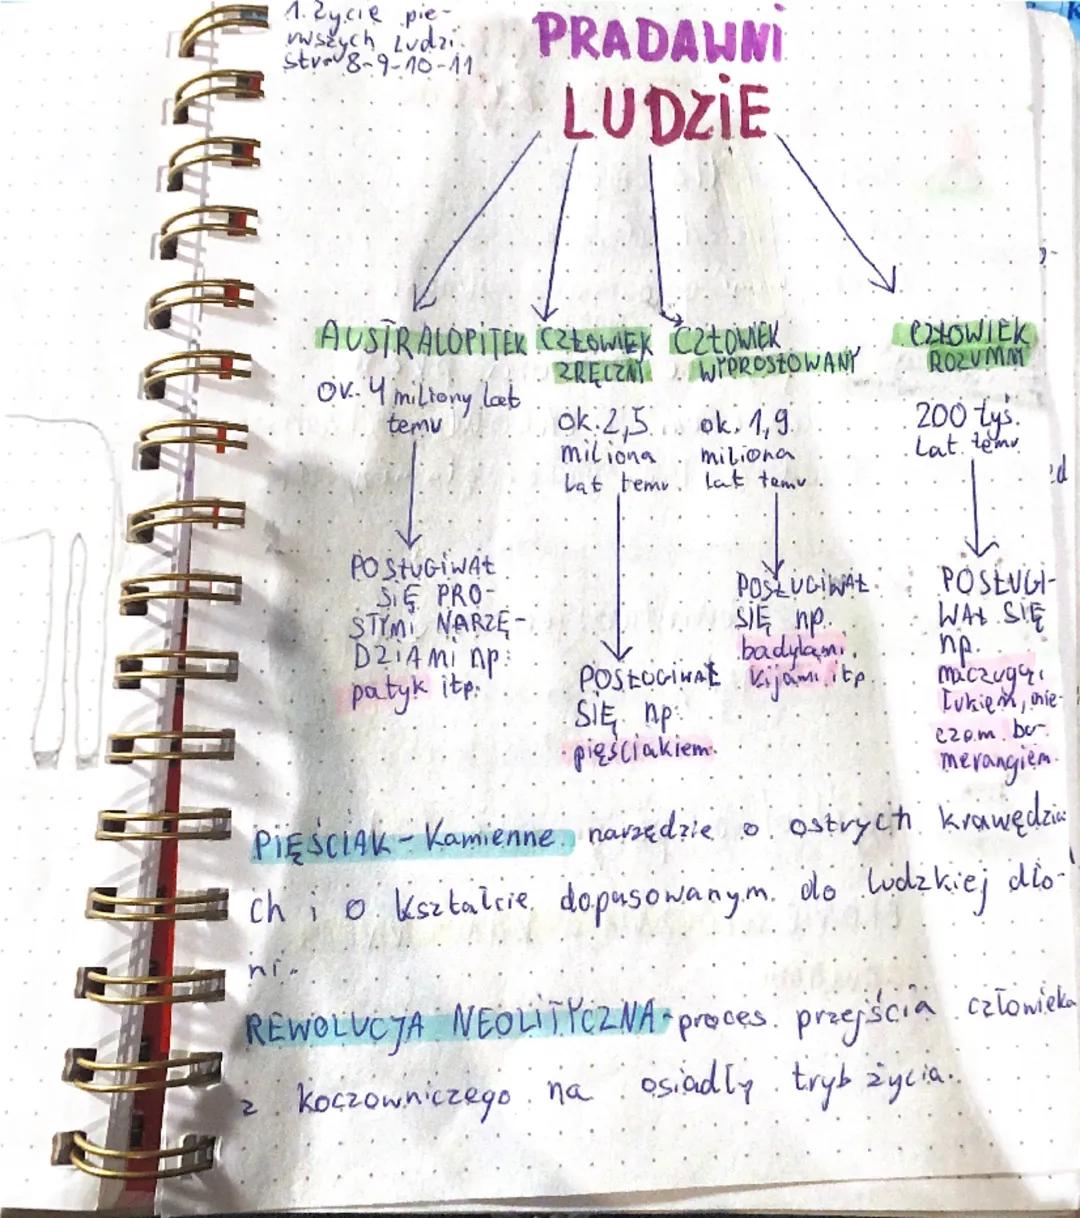 1. Życie pie-
rwszych Ludzi.
str. 8-9-10-11
PRADAWNI
LUDZIE
AUSTRALOPITEK
ok. 4 miliony lat
temu
POSŁUGIWAŁ
SIĘ PRO-
STYMI NARZĘ-
DZIAMI np:
patyk itp.
CZŁOWIEK
ZRĘCZNY
ok. 2,5
miliona
Lat temu.
POSŁOGIWAŁ
SIĘ np:
pięściakiem.
CZŁOWIEK
WYPROSTOWANY
ok. 1,9
miliona
Lat temu.
POSŁUGIWAŁ
SIĘ np.
badylami,
kijami itp.
CZŁOWIEK
ROZUMNY
200 tyś.
Lat temu
POSŁUGI-
WAŁ SIĘ
np.
maczugą,
łukiem, mie-
czem, bu-
merangiem.
PIĘŚCIAK - Kamienne narzędzie o ostrych krawędzia
ch i o kształcie dopasowanym do ludzkiej dło-
ni.
REWOLUCJA NEOLITYCZNA - proces przejścia człowieka
z koczowniczego na osiadły tryb życia.